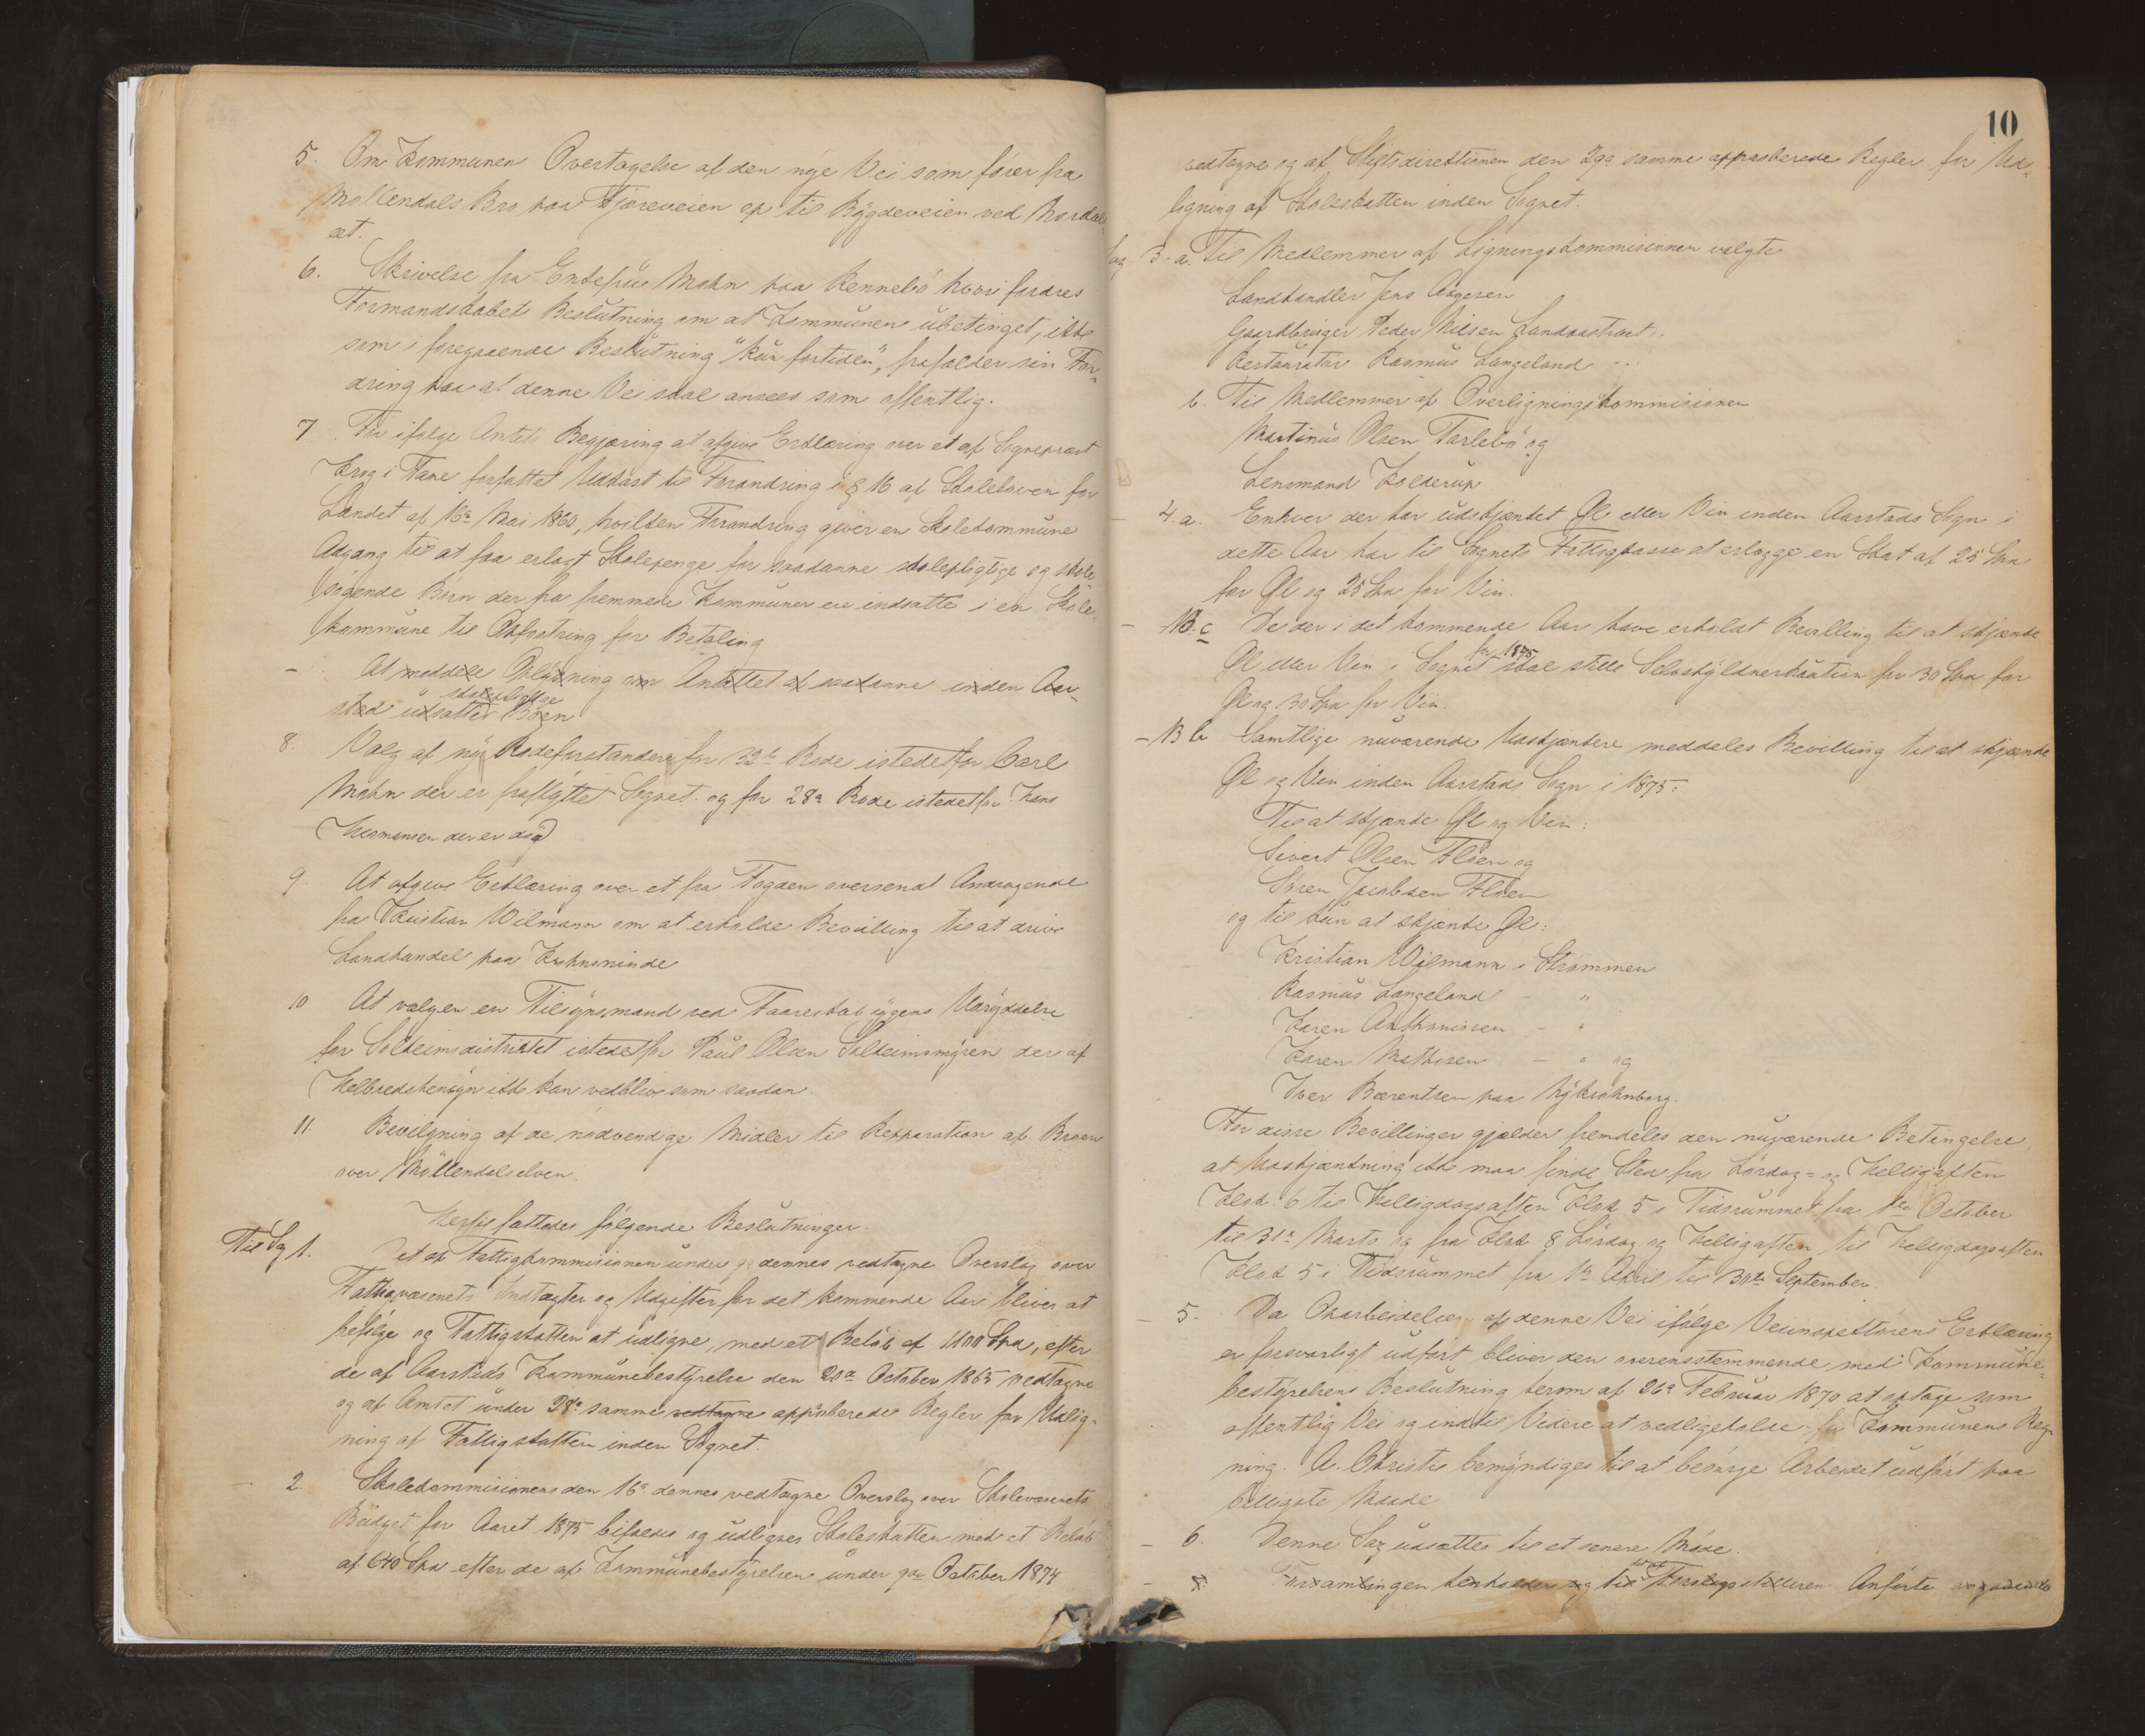 5. Om Kommunens Overtagelse af den nye Vei som fører fra
Møllendals Bro paa Fjøreveien op til Bygdeveien ved Nordal-
et.
6. Skrivelse fra Enkefru Mohn paa Kennebö hvori fordres
Formandskabets Beslutning om at Kommunen ubetinget, ikke
som i foregaaende Beslutning "kun fortiden", frafalder sin For-
dring paa at denne Vei skal ansees som offentlig.
7. For ifølge Amtets Begjæring at afgive Erklæring over et af Sognepræst
Krog i Fane forfattet Udkast til Forandring i § 16 af Skoleloven for
Landet af 16de Mai 1860, hvilken Forandring giver en Skolekommune
Adgang til at faa erlagt Skolepenge for saadanne skolepligtige og skole
søgende Børn der fra fremmede Kommuner ere indsatte i en Skole-
kommune til Opfostring for Betaling
At meddele Oplysning om Antallet af saadanne inden Aar-
skolepligtige
stad udsatte Børn
8. Valg af nye Rodeforstandere for 32te Rode istedetfor Carl
Mohn der er fraflyttet Sognet og for 28de Rode istedetfor Hans
Hermansen der er død
9. At afgive Erklæring over et fra Fogden oversendt Andragende
fra Kristian Wilmann om at erholde Bevilling til at drive
Landhandel paa
10 At vælge en Tilsynsmand ved Faareskabsygens Udryddelse
for Solheimsdistriktet istedetfor Paul Olsen Solheimsmyren der af
Helbredshensyn ikke kan vedblive som saadan.
11. Bevilgning af de nødvendige Midler til Repparation af Broen
over Møllendalselven.
Hertil fattedes følgende Beslutninger.
Til Sag 1. Det af Fattigkommisionen under 9de dennes vedtagne Overslag over
Fattigvæsenets Indtægter og Udgifter for det kommende Aar bliver at
befølge og Fattigskatten at udligne, med et Beløb af 1100 Spd, efter
de af Aarstads Kommunebestyrelse den 20de October 1865 vedtagne
og af Amtet under 28de samme vedtagne approberede Regler for Udlig-
ning af Fattigskatten inden Sognet.
2. Skolekommisionens den 16de dennes vedtagne Overslag over Skolevæsenets
Budget for Aaret 1875 bifaldes og udlignes Skoleskatten med et Beløb
af 640 Spd efter de af Kommunebestyrelsen under 9de October 1874
10
vedtagne og af Stiftsdirektionen den 29de samme approberede Regler for Ud-
ligning af Skoleskatten inden Sognet.
Sag 3. a. Til Medlemmer af Ligningskommisionen valgtes
Landhandler Jens Aagesen
Gaardbruger Peder Nilsen Landaastræt.
Restauratør Rasmus Langeland
b. Til Medlemmer af Overligningskommisionen
Martinus Olsen Tarlebö og
Lensmand Kolderup
4 a. Enhver der har udskjænket Øl eller Vin inden Aarstads Sogn i
dette Aar har til Sognets Fattigkasse at erlægge en Skat af 25 Spd
for Øl og 25 Spd for Vin.
B. c De der i det kommende Aar have erholdt Bevilling til at skjænke
for 1875
Øl eller Vin i Sognet skal stille Selvskyldnerkaution for 30 Spd for
Øl og 30 Spd for Vin.
B b Samtlige nuværende Udskjænkere meddeles Bevilling til at skjænke
Øl og Vin inden Aarstads Sogn i 1875:
Til at skjænke Øl og Vin:
Sivert Olsen Floen og
Søren Jacobsen Floen
og til kun at skjænke Øl:
Kristian Wilmann i Strømmen
Rasmus Langeland - "
Karen Anthonissen - "
Karen Mathisen - " og
Iver Bærentsen paa Nykrohnborg.
For disse Bevillinger gjælder fremdeles den nuværende Betingelse,
at Udskjænkning ikke maa finde Sted fra Lørdag- og Helligaften
Klok. 6 til Helligdagsaften Klok 5 i Tidsrummet fra 1ste October
til 31te Marts og fra Klok 8 Lørdag og Helligaften til Helligdagsaften
Klok 5 i Tidsrummet fra 1ste April til 30te September.
5. Da Oparbeidelsen af denne Vei ifølge Veiinspektørens Erklæring
er forsvarligt udført bliver den overensstemmende med Kommune-
bestyrelsens Beslutning herom af 26de Februar 1870 at optage som
offentlig Vei og indtil Videre at vedligeholde for Kommunens Reg-
ning. A. Christie bemyndiges til at besørge Arbeidet udført paa
billigste Maade
6. Denne Sag udsættes til et senere Møde.
7. Forsamlingen henholder sig til det af Forslagsstilleren Anførte